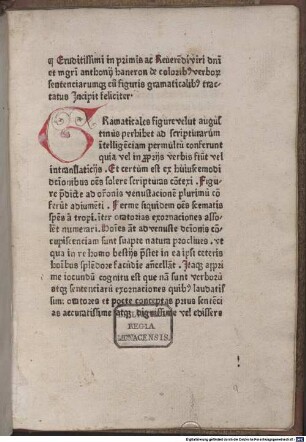 q Eruditissimi in primis ac Reuerẽdi viri dñi
et mgr̃i anthonij haneron de coloribꝰ verboꝝ
sentenciarumqꝫ cũ figuris gramaticalibꝰ trac
tatus Incipit feliciter
GRamaticales figure velut augus
tinus perhibet ad scripturarum
intelligẽciam permultũ conferunt
quia vel in ꝓprijs verbis fiũt vel
in translatiuis. Et certum est ex huiuscemodi
dc̃ionibus oẽs solere scripturas cõtexi. Figu
re p̃dicte ad oĩonis venustacionẽ plurimũ cõ
ferũt adiumẽti. Ferme siquidem oẽs scematis
spẽs ⁊ tropi iter oratorias exornaciones asso
lẽt numerari. Hoĩes aũt ad venuste dc̃ionis cõ
cupiscenciam sunt suapte natura procliues. vt
qua in re homo bestijs p̃stet in ea ipsi ceteris
hoĩbus splẽdore facũdie ancellãt. Itaqꝫ appri
me iocundũ cognitu est que nã sunt verboꝝ
atqꝫ sentenciarũ exornaciones quibꝰ laudatis
simi oratores et poete conceptas prius sentẽci
as accuratissime atqꝫ dignissime vel edissere
REGIA
MONACENSIS